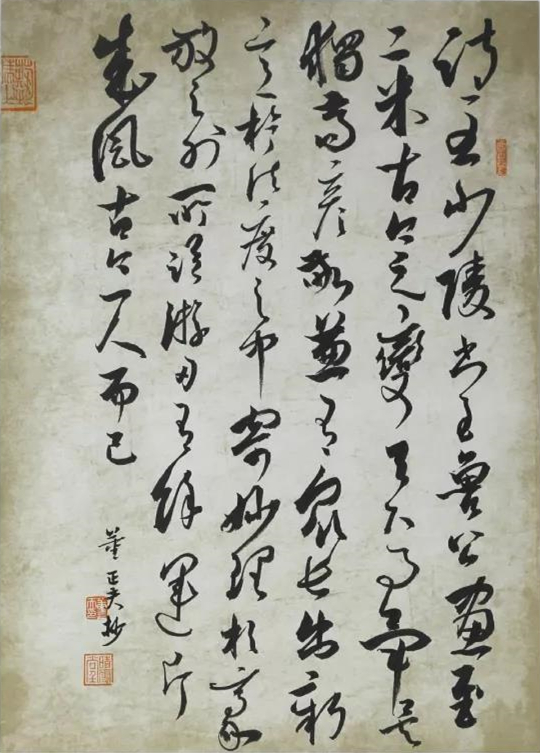 詩至少陵書至魯公畫至
二米古今之變天下事畢矣
獨高彦敬兼有衆長出新
意於法度之中寄妙理於豪
放之外所謂游刃有餘運斤
成風古今一人而已
董正夫抄